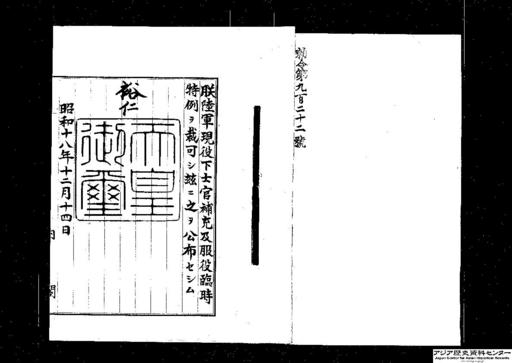 勅令第九百二十二號
朕陸軍現役下士官補充及服役臨時
特例ヲ裁可シ茲ニ之ヲ公布セシム
裕仁
天皇御璽
昭和十八年十二月十四日
内閣
アジア歴史資料センター
Japan Center for Asian Historical Records